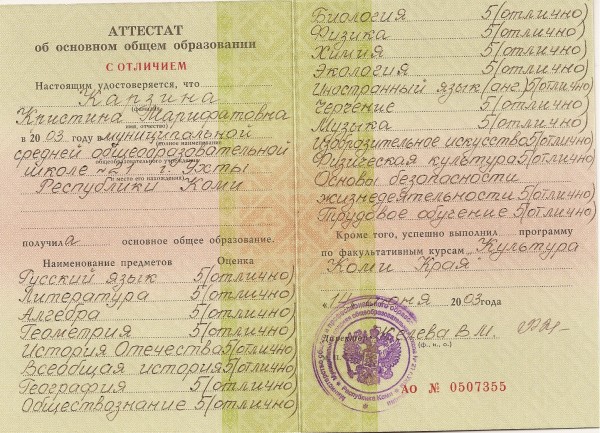 АТТЕСТАТ
об основном общем образовании
С ОТЛИЧИЕМ
Настоящим удостоверяется, что
Капзина
(фамилия)
Кристина Марифатовна
(имя, отчество)
в 2003 году в муниципальной
(полное наименование
средней общеобразовательной
общеобразовательного учреждения
школе №21 г. Ухты
и место его нахождения)
Республики Коми
получила основное общее образование.
Наименование предметов Оценка
Русский язык 5(отлично)
Литература 5(отлично)
Алгебра 5(отлично)
Геометрия 5(отлично)
История Отечества 5(отлично)
Всеобщая история 5(отлично)
География 5(отлично)
Обществознание 5(отлично)
Биология 5(отлично)
Физика 5(отлично)
Химия 5(отлично)
Экология 5(отлично)
Иностранный язык (анг.) 5(отлично)
Черчение 5(отлично)
Музыка 5(отлично)
Изобразительное искусство 5(отлично)
Физическая культура 5(отлично)
Основы безопасности
жизнедеятельности 5(отлично)
Трудовое обучение 5(отлично)
Кроме того, успешно выполнила программу
по факультативным курсам "Культура
Коми Края"
"14" июня 2003 года
Директор В.М.
(ф., и., о.)
Республики Коми
АО № 0507355